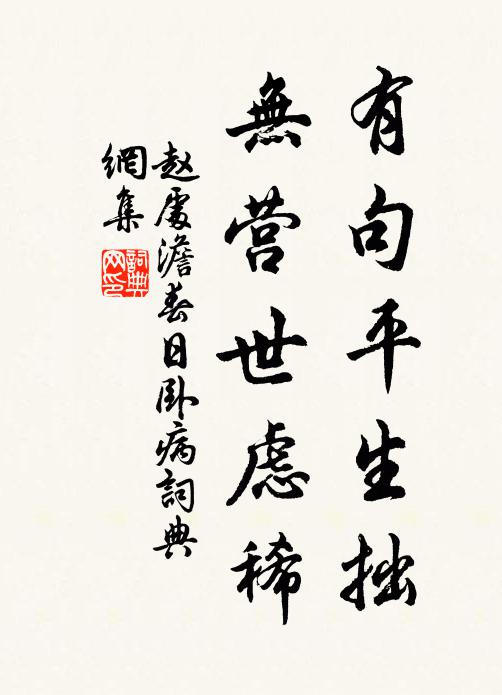 有句平生拙
無营世慮稀
赵處澹春日卧病詞典
網集
詞典
网印